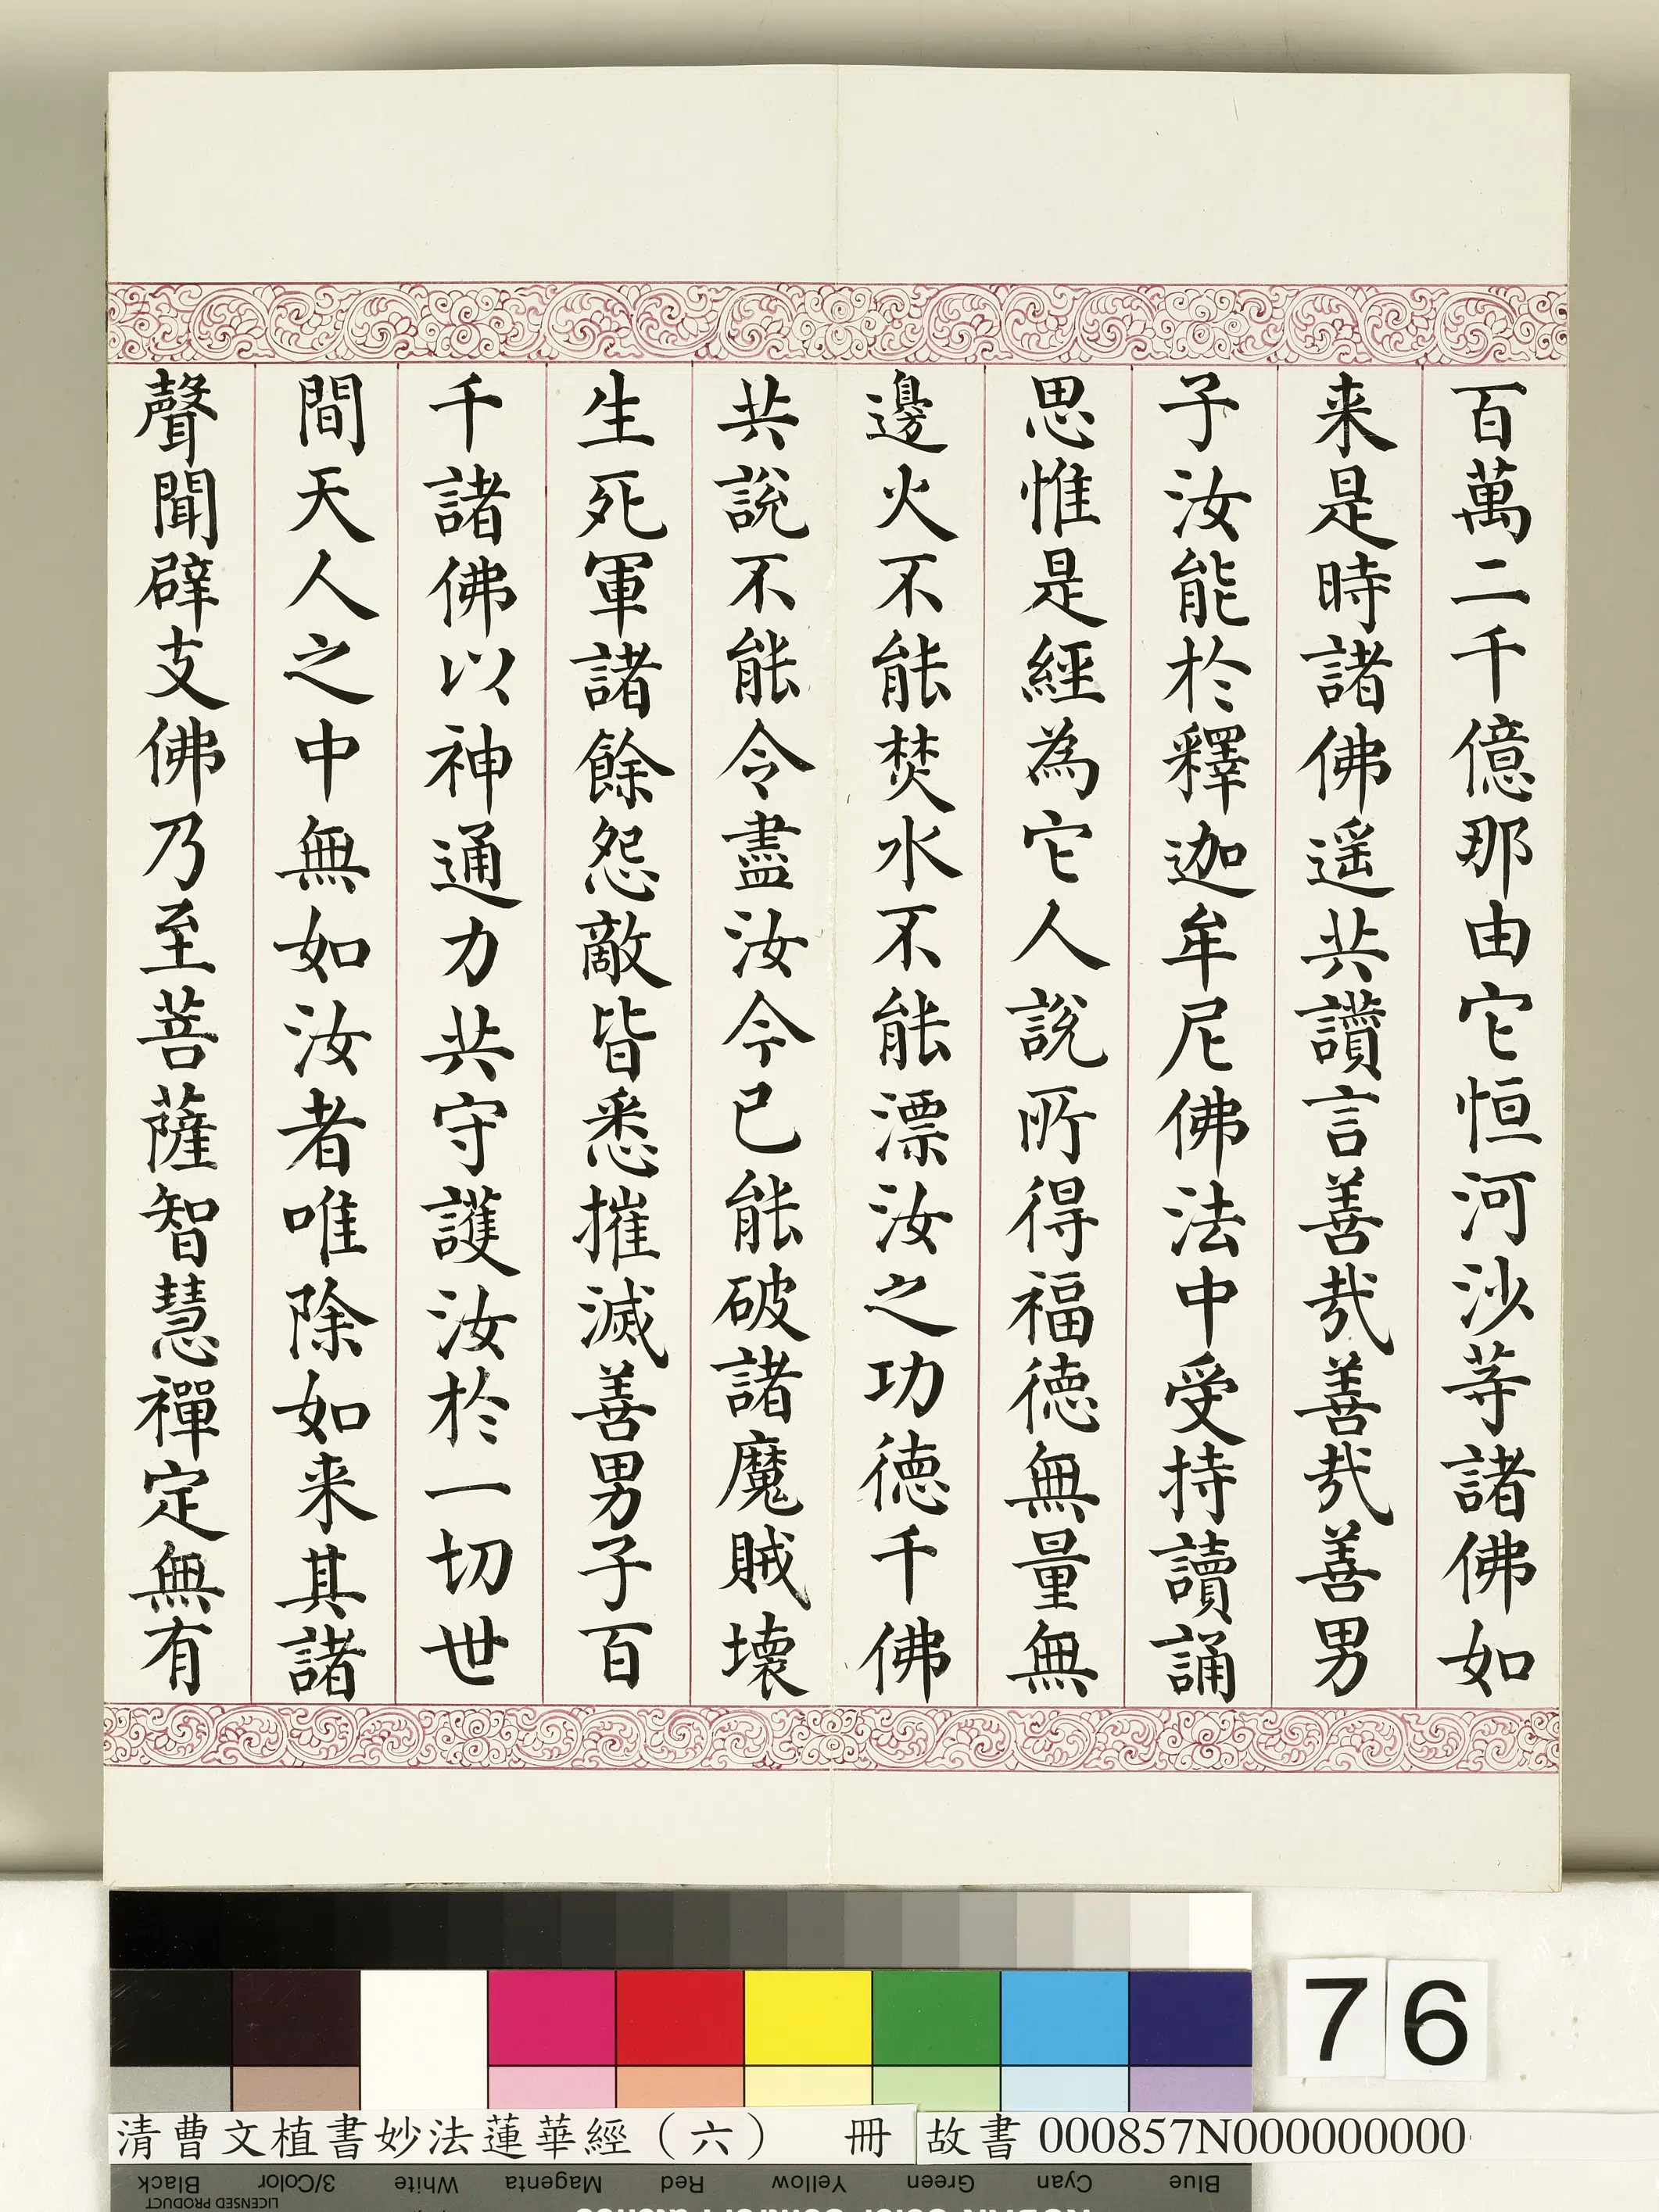 百萬二千億那由它恒河沙等諸佛如
来是時諸佛遥共讚言善㢤善㢤善男
子汝能於釋迦牟尼佛法中受持讀誦
思惟是經為它人說所得福徳無量無
邊火不能焚水不能漂汝之功徳千佛
共說不能令盡汝今已能破諸魔賊壞
生死軍諸餘怨敵皆悉摧滅善男子百
千諸佛以神通力共守護汝於一切世
間天人之中無如汝者唯除如来其諸
聲聞辟支佛乃至菩薩智慧禪定無有
76
清曹文植書妙法蓮華經（六） 冊 故書 000857N000000000
Black 3/Color White Magenta Red Yellow Green Cyan Blue
LICENSED PRODUCT